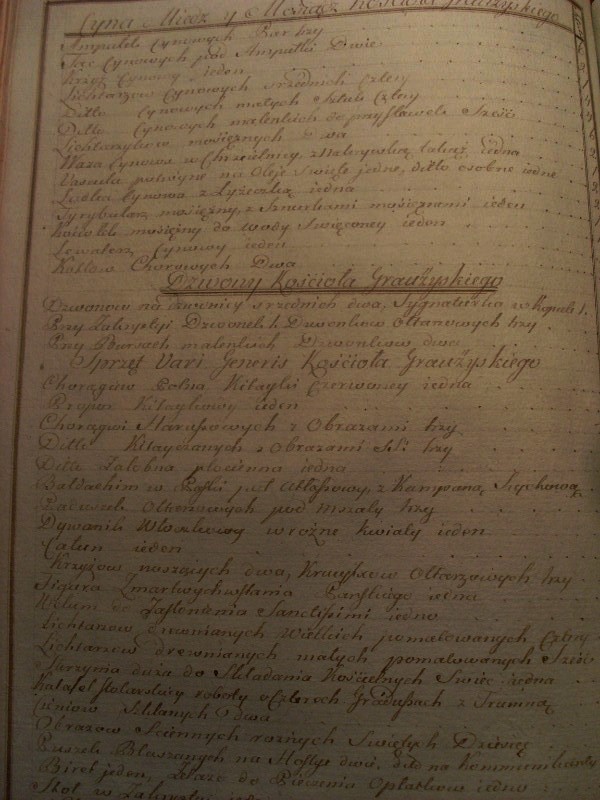 Cyna Miedz y Mosiądz Kościoła Graużyskiego
Ampułek Cynowych Par trzy
Tac Cynowych pod Ampułki Dwie
Krzyż Cynowy ieden
Lichtarzow Cynowych srzednich Cztery
Ditto Cynowych małych Sztuk Cztery
Ditto Cynowych malenkich do przystawek Sześć
Lichtarzykow mosiężnych dwa
Waza Cynowa w Chrzcielnicy, z Nakrywką takąż iedna
Vascula potroyne na Oleje Swięte jedne, ditto osobne iedne
Łodka Cynowa z Łyżeczką iedna
Tyrybularz mosiężny, z Sznurkami mosiężnemi ieden
Kociołek mosiężny do wody Swięconey ieden
Lewaterz Cynowy ieden
Kotłow Chorowych Dwa
Dzwony Kościoła Graużyskiego
Dzwonow na dzwonicy srzednich dwa, Sygnaturka w Kopule 1.
Przy Zakrystyi Dzwonek 1. Dzwonkow Ołtarzowych trzy
Przy Bursach malenkich Dzwonkow dwa
Sprzęt Vari Generis Kościoła Graużyskiego
Chorągiew Polna Kitayki Czerwoney iedna
Proporz Kitaykowy ieden
Chorągwi Harusowych z Obrazami trzy
Ditto Kitayczanych z Obrazami trzy
Ditto Żałobna płocienna iedna
Baldachim w Paski puł Atłasowy, z Kampaną Sychową
Poduszek Ołtarzowych pod mszały trzy
Dywanik Włoczkowy w rożne kwiaty ieden
Całun ieden
Krzyżow noszących dwa, Krucyfixow Ołtarzowych trzy
Figura Zmartwychwstania Pańskiego iedna
Welum do Zasłonienia Sanctissimi iedno
Lichtarzow drewnianych Wielkich pomalowanych Cztery
Lichtarzow drewnianych małych pomalowanych Sześć
Skrzynia duża do Składania Kościelnych Swiec iedna
Katafel stolarskiey roboty o Czterech Gradusach z Trumną
Cieniow Szklanych dwa
Obrazow Sciennych rożnych Swiętych Dziesięć
Puszek Blaszanych na Hostye dwie, ditto na Kommunikanty
Biret jeden, Żelazo do Pieczenia Opłatkow iedno
Stoł w Zakrystyi